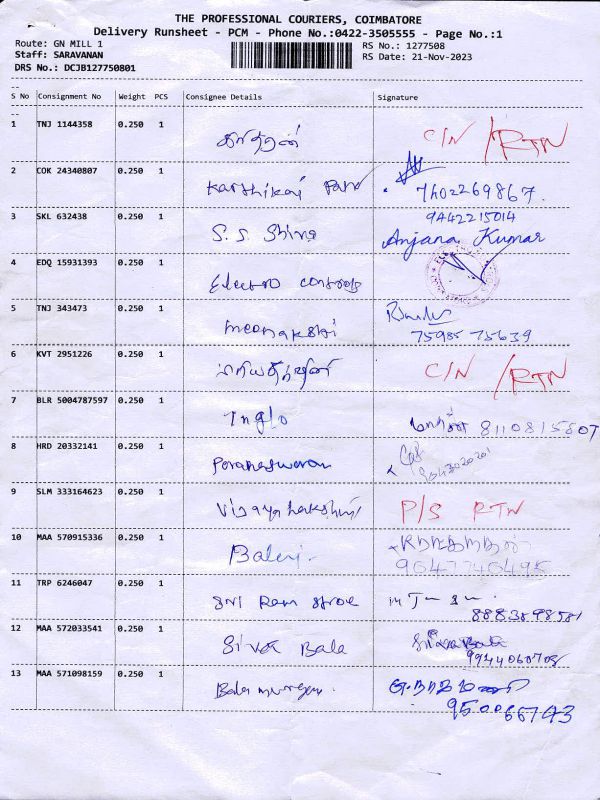 THE PROFESSIONAL COURIERS, COIMBATORE
Delivery Runsheet - PCM - Phone No.:0422-3505555 - Page No.:1
Route: GN MILL 1
RS No.: 1277508
Staff: SARAVANAN
RS Date: 21-Nov-2023
DRS No.: DCJB127750801
S No Consignment No Weight PCS Consignee Details Signature
1 TNJ 1144358 0.250 1 C/N /RTN
2 COK 24340807 0.250 1 Karthikai 7402269867.
9442215014
3 SKL 632438 0.250 1 S. S. Shiva Anjana Kumar
4 EDQ 15931393 0.250 1 Electro controls
5 TNJ 343473 0.250 1 meenakshi
75985 75639
6 KVT 2951226 0.250 1 C/N /RTN
7 BLR 5004787597 0.250 1 Inglo 8110815807
8 HRD 20332141 0.250 1 Parameswaran
9 SLM 333164623 0.250 1 Vijayalakshmi P/S RTN
10 MAA 570915336 0.250 1 Balaji.
11 TRP 6246047 0.250 1 Sri Ram
12 MAA 572033541 0.250 1 Siva Bala
9944060708
13 MAA 571098159 0.250 1 Balamurugan